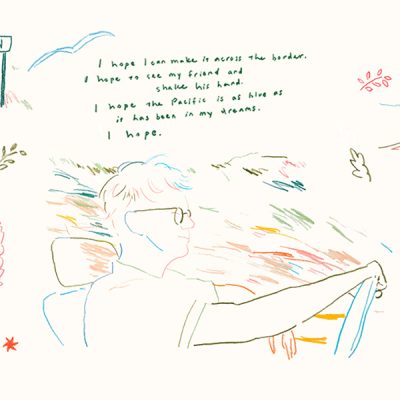 I hope I can make it across the border.
I hope to see my friend and
shake his hand.
I hope the Pacific is as blue as
it has been in my dreams.
I hope.